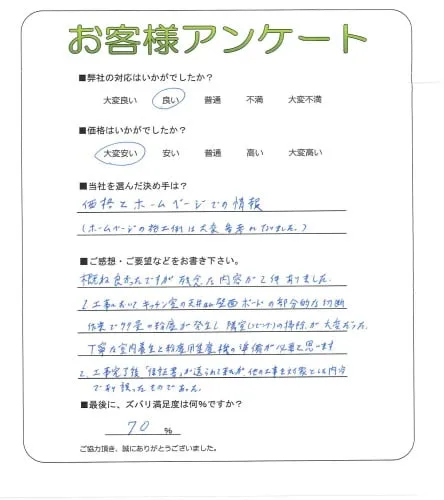 お客様アンケート
■弊社の対応はいかがでしたか?
大変良い 良い 普通 不満 大変不満
■価格はいかがでしたか?
大変安い 安い 普通 高い 大変高い
■当社を選んだ決め手は?
価格とホームページでの情報
(ホームページの施工例は大変参考になりました。)
■ご感想・ご要望などをお書き下さい。
概ね良かったですが残念な内容が2件ありました。
1.工事においてキッチン室の天井 壁面ボードの部分的な切断
作業で多量の粉塵が発生し隣室(リビング)の掃除が大変だった。
丁寧な室内養生と粉塵用集塵機の準備が必要と思います
2.工事完了後「保証書」が送られて来たが、他の工事を対象とした内容
であり誤ったものであった。
■最後に、ズバリ満足度は何%ですか?
70 %
ご協力頂き、誠にありがとうございました。